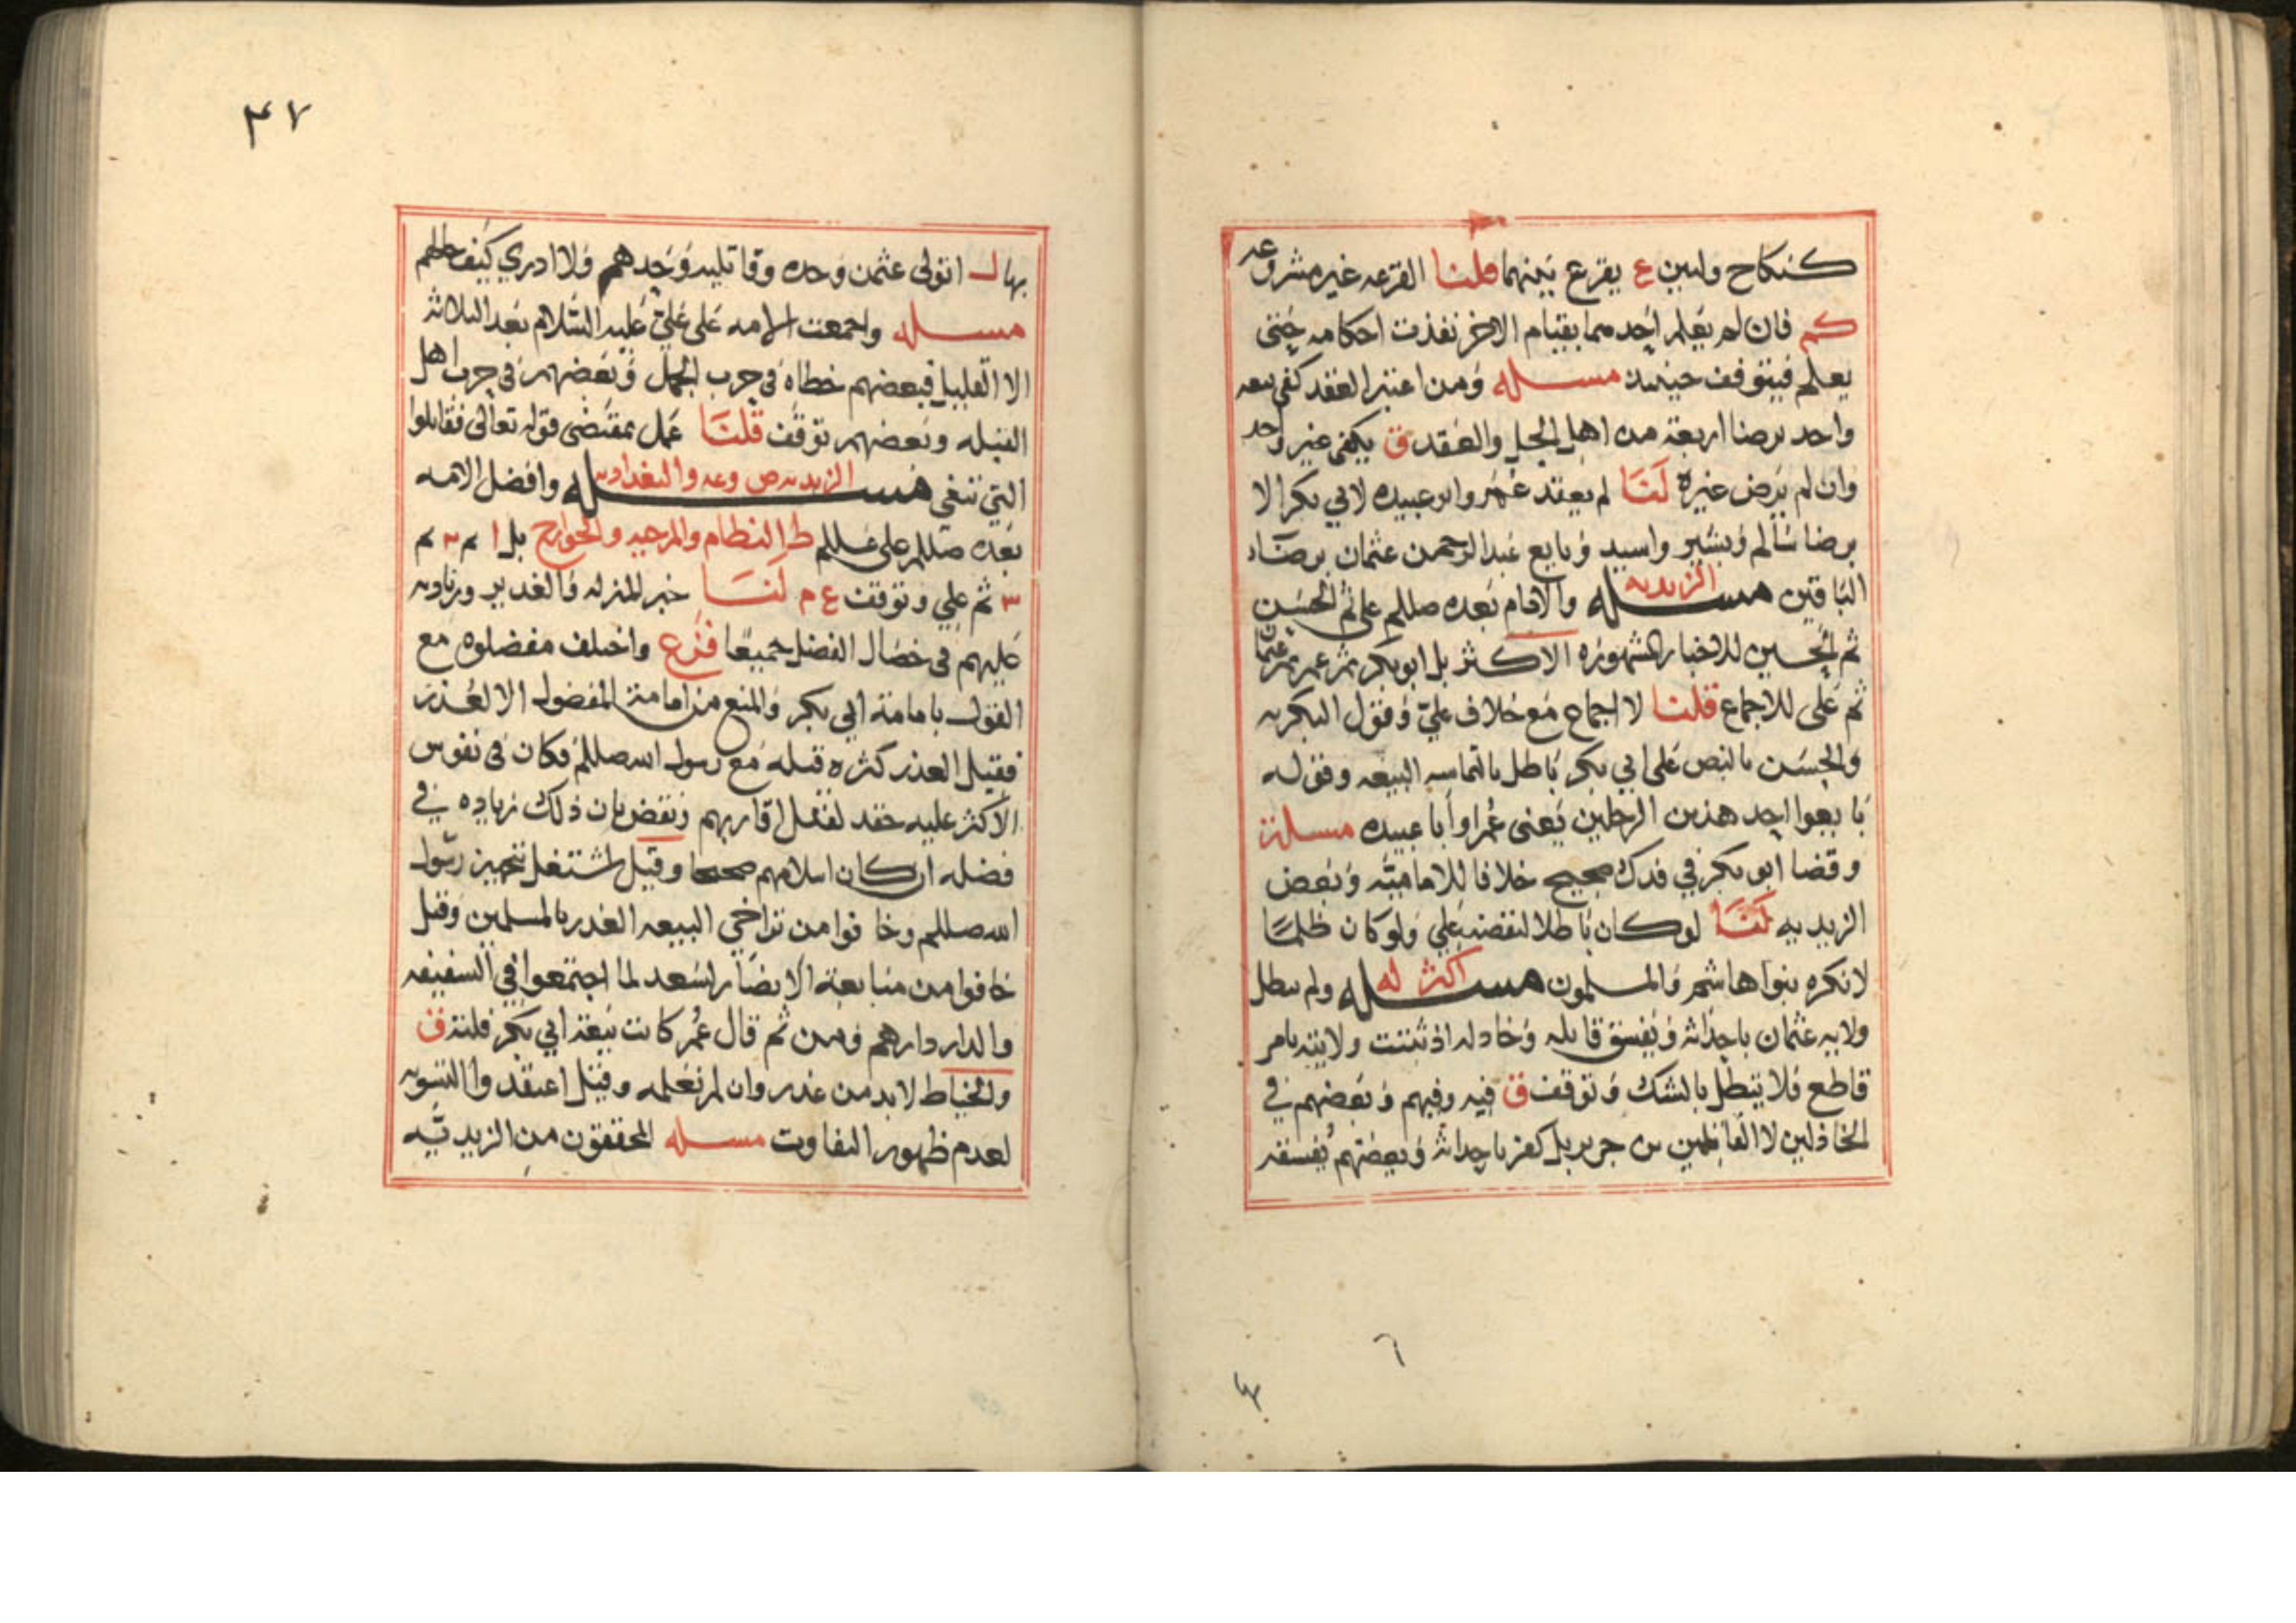 كنكاح وليين ع يقرع بينهما قلنا القرعه غير مشروعه
كم فان لم يعلم احدهما بقيام الاخر نفذت احكامه حتى
يعلم فيتوقف حينئذ مسله ومن اعتبر العقد كفى بيعه
واحد برضا اربعة من اهل الحل والعقد ق يكفى غير واحد
وان لم يرض غيره لنا لم يعقد عمر وابو عبيده لابي بكر الا
برضا سالم وبشير واسيد وبايع عبد الرحمن عثمان برضا
الباقين مسله الزيديه والامام بعده صللم علي ثم الحسن
ثم الحسين للاخبار المشهوره الاكثر بل ابو بكر ثم عمر ثم عثمان
ثم على للاجماع قلنا لا اجماع مع خلاف علي وقول البكريه
والحسن بالنص على ابي بكر باطل بالتماسه البيعه وقوله
بايعوا احد هذين الرجلين يعنى عمر او ابا عبيده مسلة
وقضا ابو بكر في فدك صحيح خلافا للاماميه وبعض
الزيديه لنا لو كان باطلا لنقضه علي ولو كان ظلما
لانكره بنوا هاشم والمسلمون مسله اكثر له ولم تبطل
ولايه عثمان باحداثه ويفسق قاتله وخاذله اذ ثبتت ولايته بامر
قاطع فلا يبطل بالشك وتوقف ق فيه وفيهم وبعضهم في
الخاذلين لا القاتلين بن جرير بل كفر باحداثه وبعضهم يفسقه
٤٧
بها ل اتولى عثمن وحده وقاتليه وحدهم ولا ادري كيف حالهم
مسله واجمعت الامه على علي عليه السلام بعد الثلاثه
الا القليل فبعضهم خطاه في حرب الجمل وبعضهم في حرب اهل
القبله وبعضهم توقف قلنا عمل بمقتضى قوله تعالى فقاتلوا
التي تبغي مسله الزيديه ص وعه والبغداديه وافضل الامه
بعده صللم على عللم ط النظام والمرجيه والخوارج بل ا م م م
٣ ثم علي وتوقف ع م لنا خبر المنزله والغدير وزيادته
عليهم في خصال الفضل جميعا فرع واختلف مفضلوه مع
القول بامامة ابي بكر والمنع من امامة المفضول الا لعذر
فقيل العذر كثره قتله مع رسول الله صللم فكان في نفوس
الاكثر عليه حقد لقتل اقاربهم ونقض بان ذلك زياده في
فضله ان كان اسلامهم صحيحا وقيل اشتغل بتجهيز رسول
الله صللم وخافوا من تراخي البيعه الغدر بالمسلمين وقيل
خافوا من متابعة الانصار لسعد لما اجتمعوا في السقيفه
والدار دارهم ومن ثم قال عمر كانت بيعة ابي بكر فلتة ق
والخياط لا بد من عذر وان لم نعلمه وقيل اعتقدوا التسويه
لعدم ظهور التفاوت مسله المحققون من الزيديه